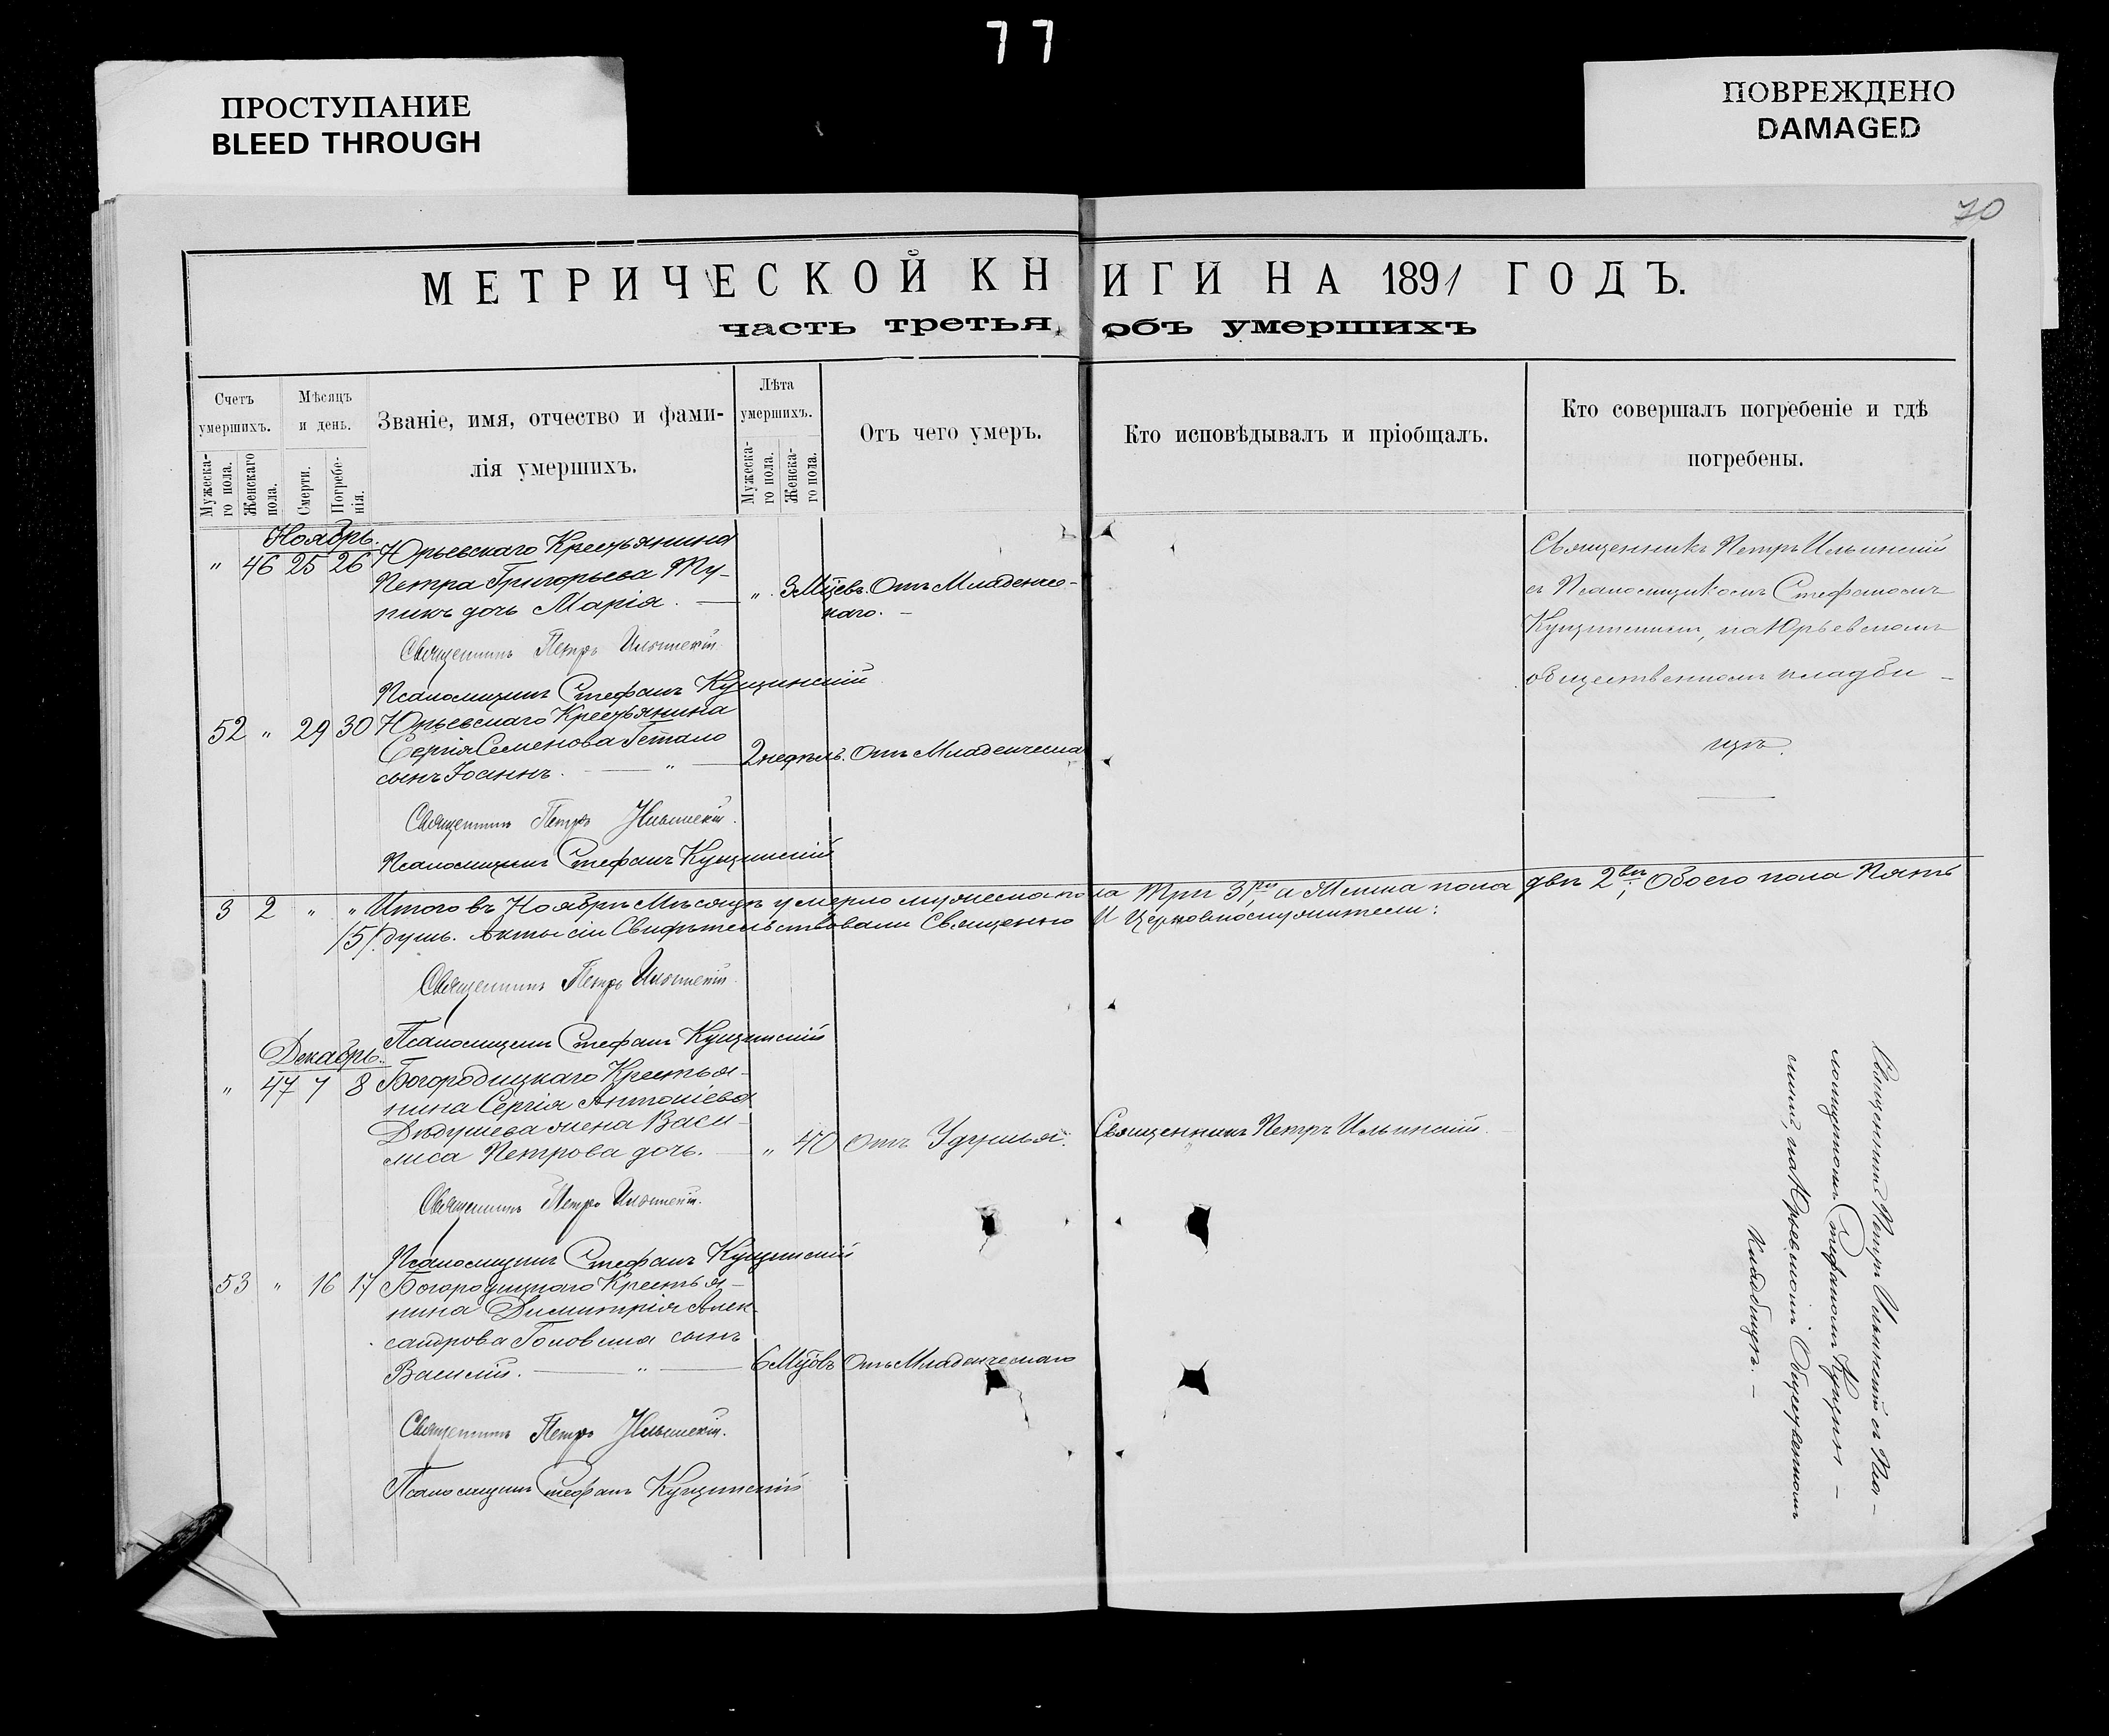 77
ПРОСТУПАНИЕ
BLEED THROUGH
ПОВРЕЖДЕНО
DAMAGED
70
МЕТРИЧЕСКОЙ КНИГИ НА 1891 ГОДЪ.
часть третья, объ умершихъ
Счетъ умершихъ.
Мужеска-го пола.
Женскаго пола.
Мѣсяцъ и день.
Смерти.
Погребе-нія.
Званіе, имя, отчество и фами-
лія умершихъ.
Лѣта умершихъ.
Мужеска-го пола.
Женска-го пола.
Отъ чего умеръ.
Кто исповѣдывалъ и пріобщалъ.
Кто совершалъ погребеніе и гдѣ
погребены.
Ноябрь.
" 46 25 26 Юрьевскаго Крестьянина
Петра Григорьева
дочь Марія. — " 3 Мцевъ. Отъ Младенчес-
каго. —
Священникъ Петръ Ильинскій
съ Псаломщикомъ Стефаномъ
Кущинскимъ, на Юрьевскомъ
общественномъ кладби —
щѣ.
Священникъ Петръ Ильинскій
Псаломщикъ Стефанъ Кущинскій
52 " 29 30 Юрьевскаго Крестьянина
Сергія Семенова
сынъ Іоаннъ. — " — 2 недѣль. Отъ Младенческа
Священникъ Петръ Ильинскій.
Псаломщикъ Стефанъ Кущинскій
3 2 " " Итого въ Ноябрѣ Мѣсяцѣ умерло мужеска пола Три 3, а Женска пола двѣ 2, Обоего пола Пять
/5/ душъ. Акты сіи Свидѣтельствовали Священно И Церковнослужители:
Священникъ Петръ Ильинскій.
Псаломщикъ Стефанъ Кущинскій
Декабрь.
" 47 7 8 Богородицкаго Крестья-
нина Сергія Антоніева
Дѣдушева жена Васи-
лиса Петрова дочь. — " 40 Отъ Удушья. Священникъ Петръ Ильинскій.
Священникъ Петръ Ильинскій.
Псаломщикъ Стефанъ Кущинскій
53 " 16 17 Богородицкаго Крестья-
нина Димитрія Алек-
сандрова Головина сынъ
Василій. — " — 6 Мцовъ Отъ Младенческаго
Священникъ Петръ Ильинскій.
Псаломщикъ Стефанъ Кущинскій
Священникъ Петръ Ильинскій съ Пса-
ломщикомъ Стефаномъ Кущин-
скимъ, на Юрьевскомъ Общественномъ
Кладбищѣ. —